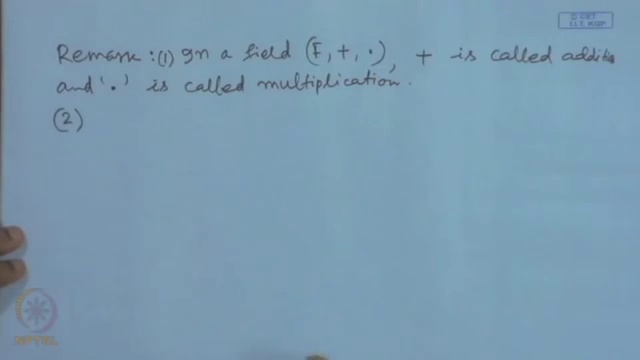 © CET
I.I.T. KGP
Remark : (1) In a field (F, +, ·), + is called additi
and '·' is called multiplication.
(2)
NPTEL